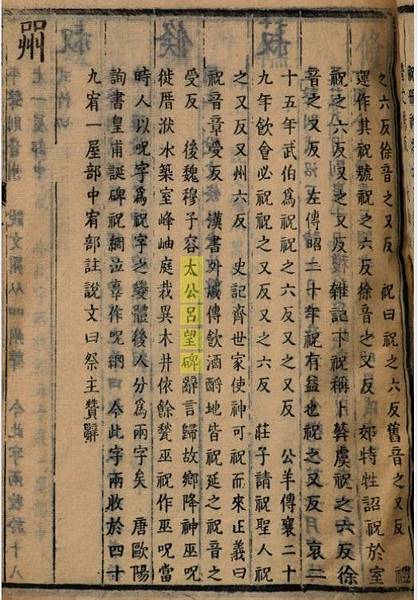 之六反徐音之又反　祝曰祝之六反舊音之又反　禮
運作其祝號祝之六反徐音之又反　郊特牲詔祝於室
祝之六反又之又反　雜記下祝稱卜葬虞祝之六反徐
音之又反　左傳昭二十年祝有益也祝之又反　哀二
十五年武伯爲祝祝之又反又之又反　公羊傳襄二十
九年飲食必祝祝之又反又之六反　莊子請祝聖人祝
之又反又州六反　史記齊世家使神可祝而來正義曰
祝音章受反　漢書外戚傳飲酒酹地皆祝延之祝音之
受反　後魏穆子容太公呂望碑辭言歸故鄉降神巫呪
徙厝洑水築室峰岫庭栽異木井依餘甃巫祝作巫呪當
時人以呪字爲祝字之變體後人分爲兩字矣　唐歐陽
詢書皇甫誕碑祝網泣辜作呪網　今此字兩收於四十
九宥一屋部中宥部註說文曰祭主贊辭
喌